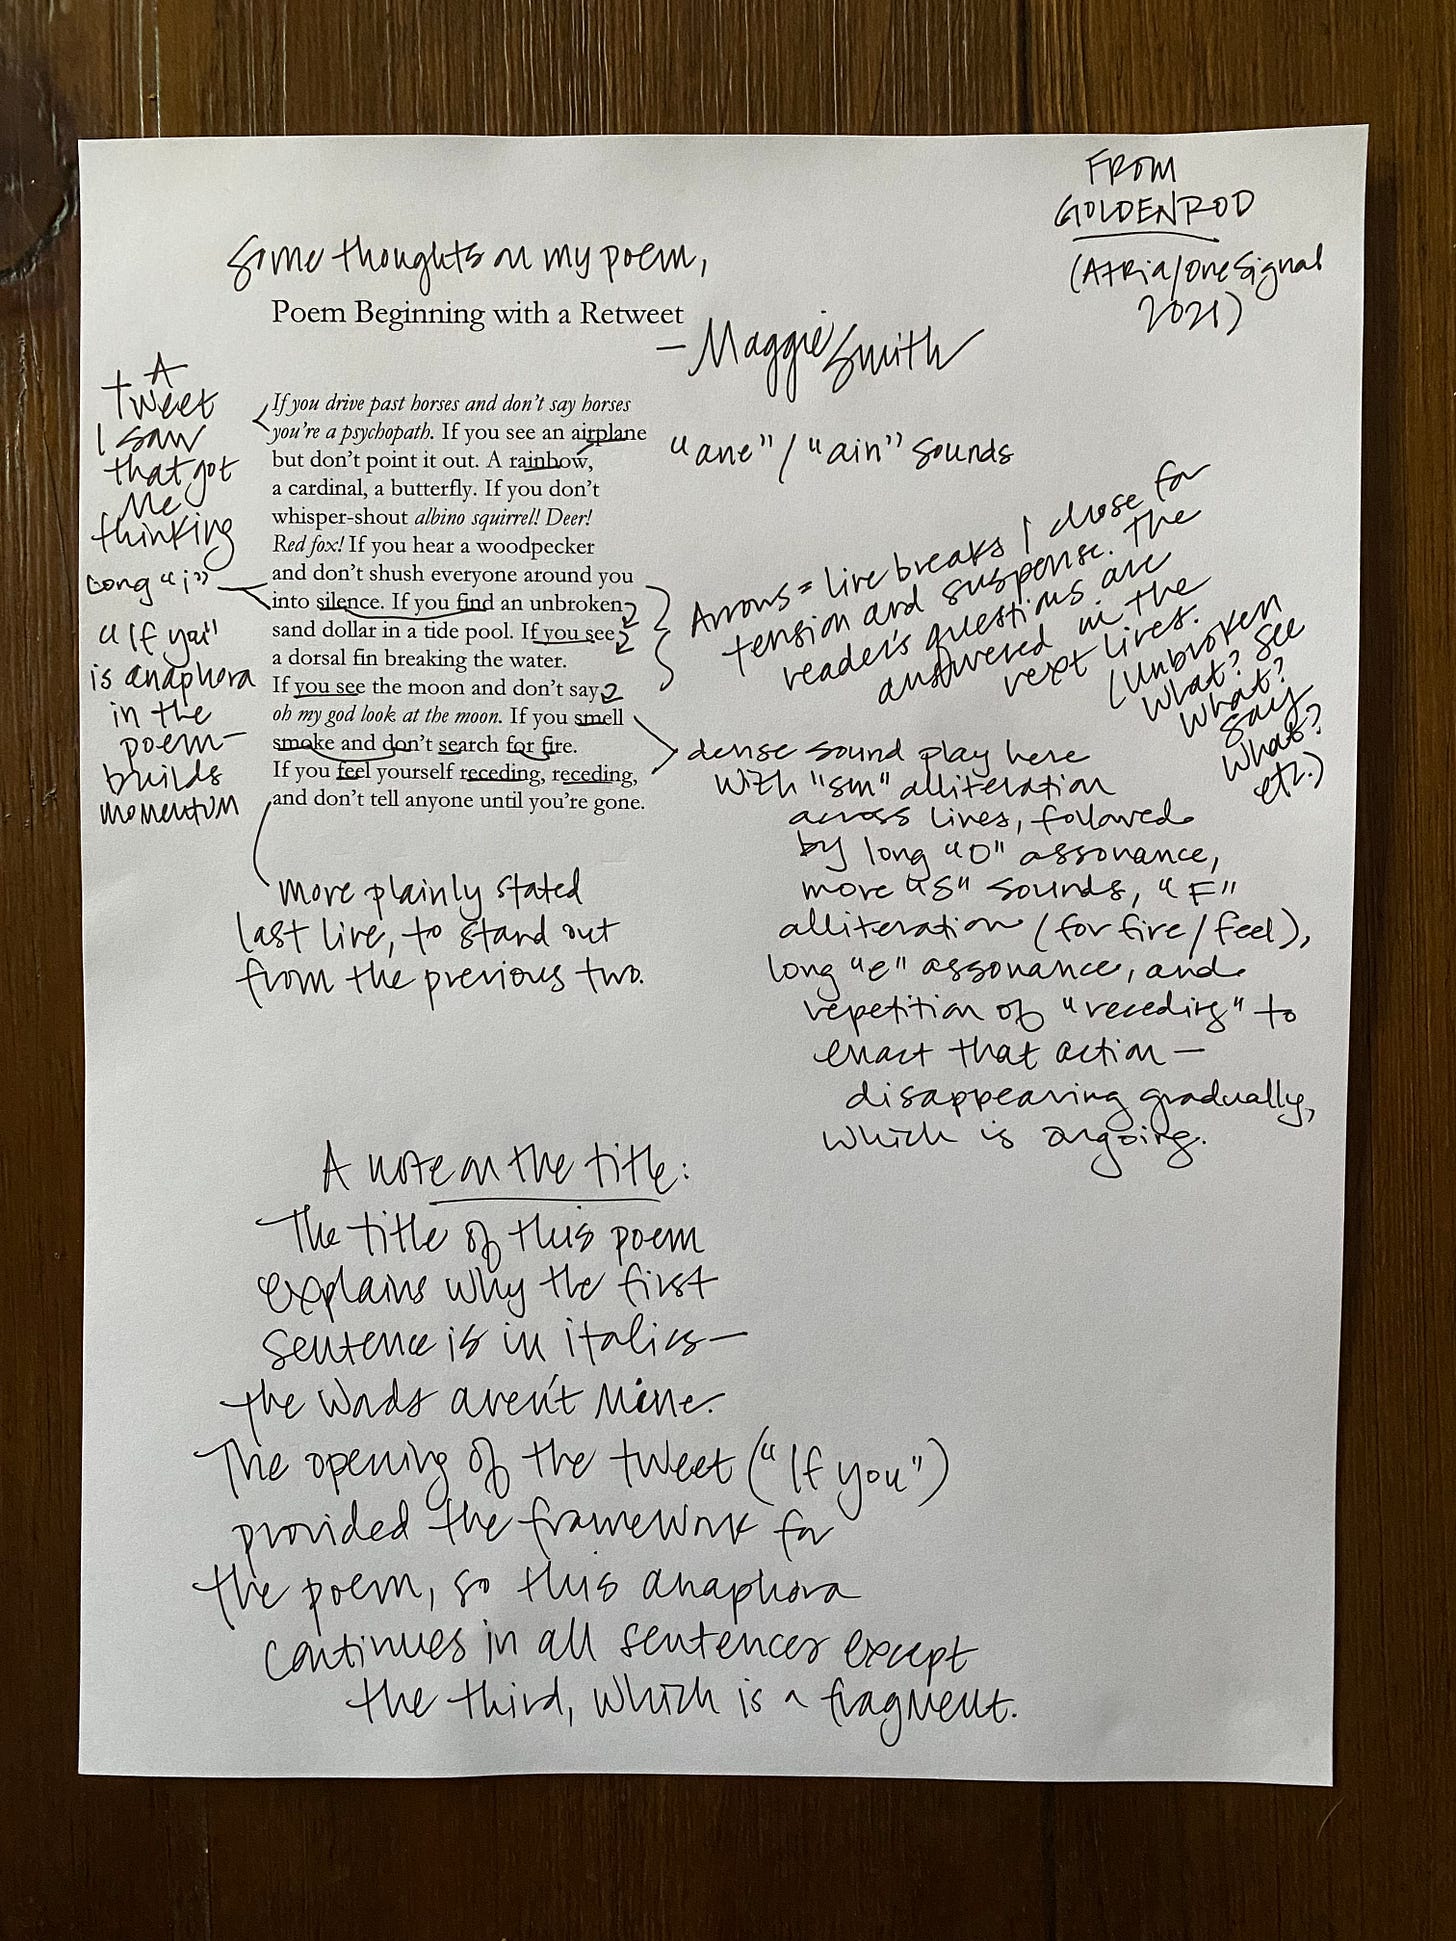 FROM
GOLDENROD
(Atria/One Signal
2021)
Some thoughts on my poem,
Poem Beginning with a Retweet
— Maggie Smith
A
tweet
I saw
that got
me
thinking
If you drive past horses and don't say horses
you're a psychopath. If you see an airplane
but don't point it out. A rainbow,
a cardinal, a butterfly. If you don't
whisper-shout albino squirrel! Deer!
Red fox! If you hear a woodpecker
and don't shush everyone around you
into silence. If you find an unbroken
sand dollar in a tide pool. If you see
a dorsal fin breaking the water.
If you see the moon and don't say
oh my god look at the moon. If you smell
smoke and don't search for fire.
If you feel yourself receding, receding,
and don't tell anyone until you're gone.
"ane" / "ain" sounds
Long "i"
"If you"
is anaphora
in the
poem—
builds
momentum
Arrows = line breaks I chose for
tension and suspense. The
reader's questions are
answered in the
next lines.
(Unbroken
what? See
what?
Say
what?
etc.)
dense sound play here
with "sm" alliteration
across lines, followed
by long "O" assonance,
more "S" sounds, "F"
alliteration (for fire/feel),
long "e" assonance, and
repetition of "receding" to
enact that action—
disappearing gradually,
which is ongoing.
more plainly stated
last line, to stand out
from the previous two.
A note on the title:
The title of this poem
explains why the first
sentence is in italics—
the words aren't mine.
The opening of the tweet ("If you")
provided the framework for
the poem, so this anaphora
continues in all sentences except
the third, which is a fragment.